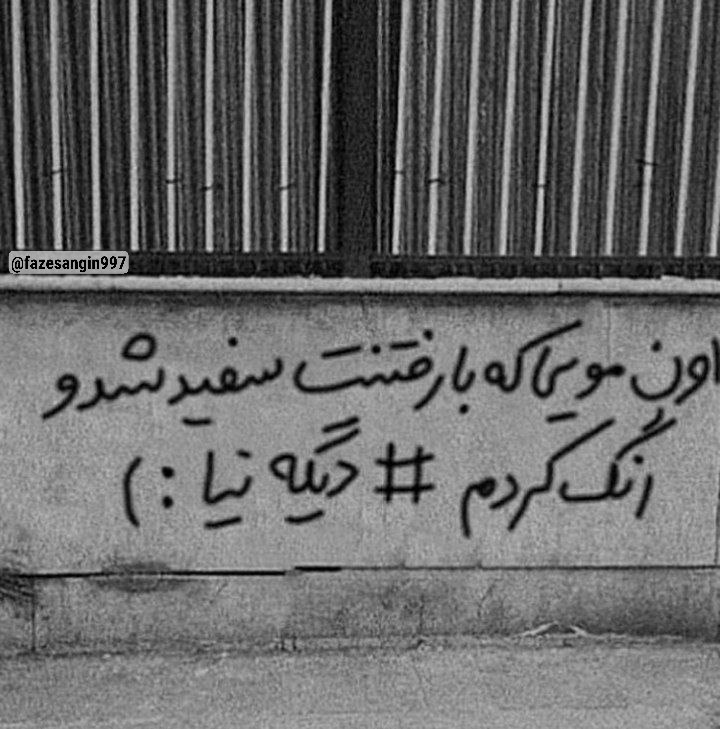 @fazesangin997
اون مویی که با رفتنت سفید شد و
رنگ کردم # دیگه نیا :)